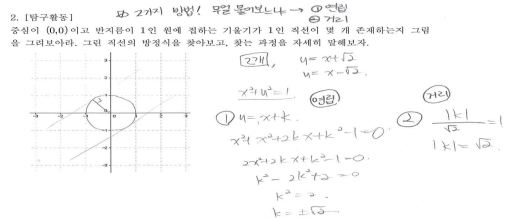 2. [탐구활동]
2가지 방법! 무엇 물어보느냐 → ① 연립
② 거리
중심이 (0,0)이고 반지름이 1인 원에 접하는 기울기가 1인 직선이 몇 개 존재하는지 그림
을 그려보아라. 그런 직선의 방정식을 찾아보고, 찾는 과정을 자세히 말해보자.
2개, y = x+√2
y = x-√2.
x²+y²=1
연립
① y = x+k.
x²+x²+2kx+k²-1=0.
2x²+2kx+k²-1=0.
k²-2k²+2=0
k²=2.
k=±√2
거리
② |k|/√2 = 1
|k|=√2.